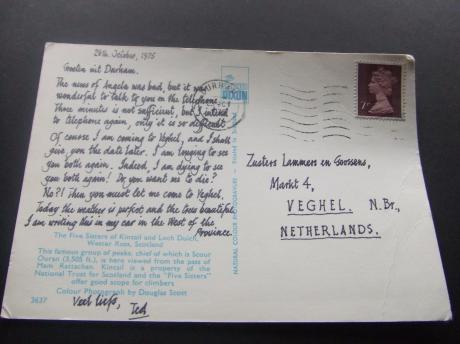 26th October, 1975
Groeten uit Durham.
The news of Angela was bad, but it was
wonderful to talk to you on the telephone.
Three minutes is not sufficient, but I intend
to telephone again, only it is so difficult.
Of course I am coming to Veghel, and I shall
give you the date later. I am longing to see
you both again. Indeed, I am dying to see
you both again! Do you want me to die?
No?! Then you must let me come to Veghel.
Today the weather is perfect and the lowes beautiful.
I am writing this in my car in the West of the
Province.
The Five Sisters of Kintail and Loch Duich,
Wester Ross, Scotland
This famous group of peaks, chief of which is Scour
Ouran (3,505 ft.), is here viewed from the pass of
Mam Rattachan. Kintail is a property of the
National Trust for Scotland and the "Five Sisters"
offer good scope for climbers
Colour Photograph by Douglas Scott
3637
Veel liefs,
Ted
DIXON
NATURAL COLOUR PHOTOGRAPHY
7P
Zusters Lammers en Goossens,
Markt 4,
VEGHEL. N.Br.,
NETHERLANDS.